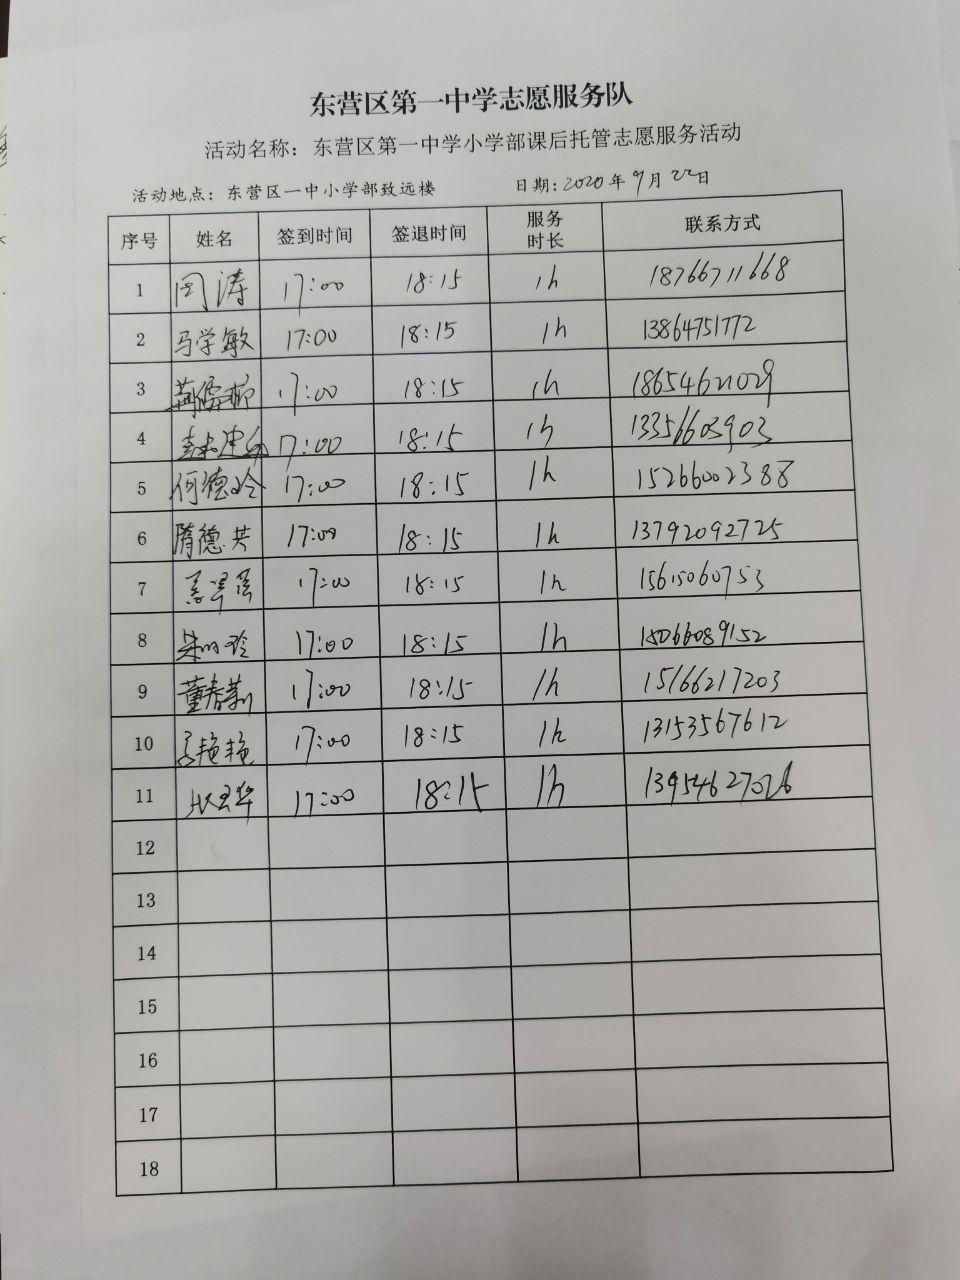 东营区第一中学志愿服务队
活动名称：东营区第一中学小学部课后托管志愿服务活动
活动地点：东营区一中小学部致远楼 日期：2020年9月22日
序号 姓名 签到时间 签退时间 服务时长 联系方式
1 周涛 17:00 18:15 1h 18766711668
2 马学敏 17:00 18:15 1h 13864751772
3 17:00 18:15 1h 18654621029
4 17:00 18:15 1h 13356603903
5 何德玲 17:00 18:15 1h 15266002388
6 隋德芸 17:00 18:15 1h 13792092725
7 17:00 18:15 1h 15615060753
8 朱明玲 17:00 18:15 1h 15066089152
9 董春莉 17:00 18:15 1h 15166217203
10 艳艳 17:00 18:15 1h 13153567612
11 17:00 18:15 1h 13954627026
12
13
14
15
16
17
18